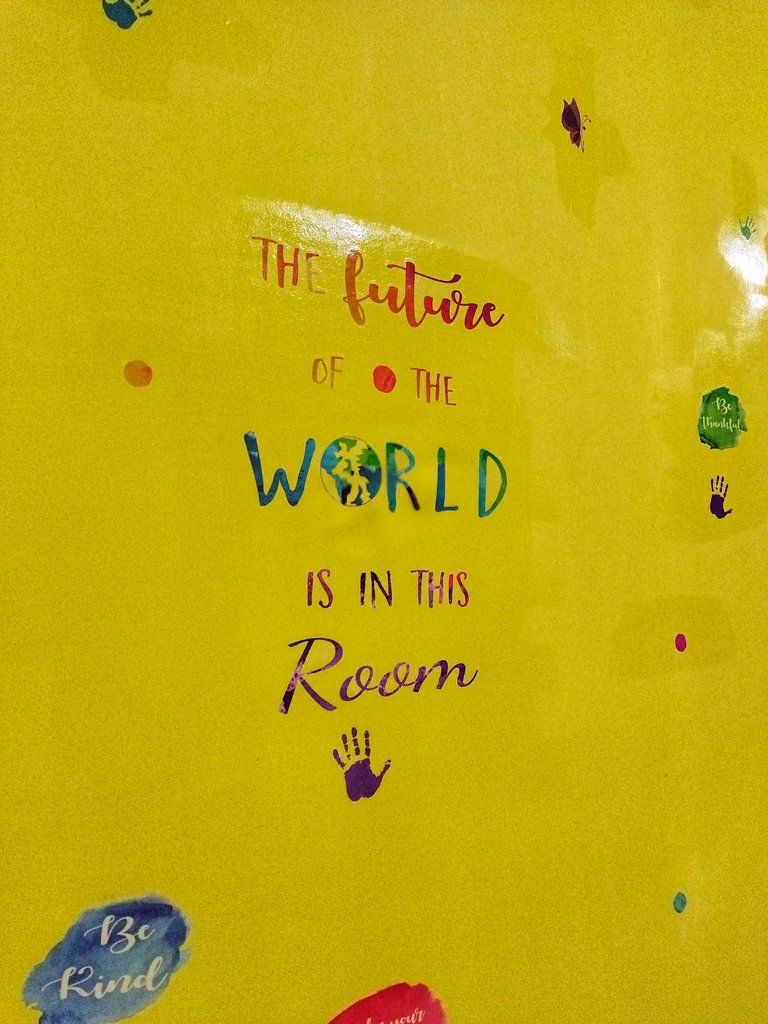 THE future
OF THE
WORLD
IS IN THIS
Room
Be
thankful
Be
Kind
your